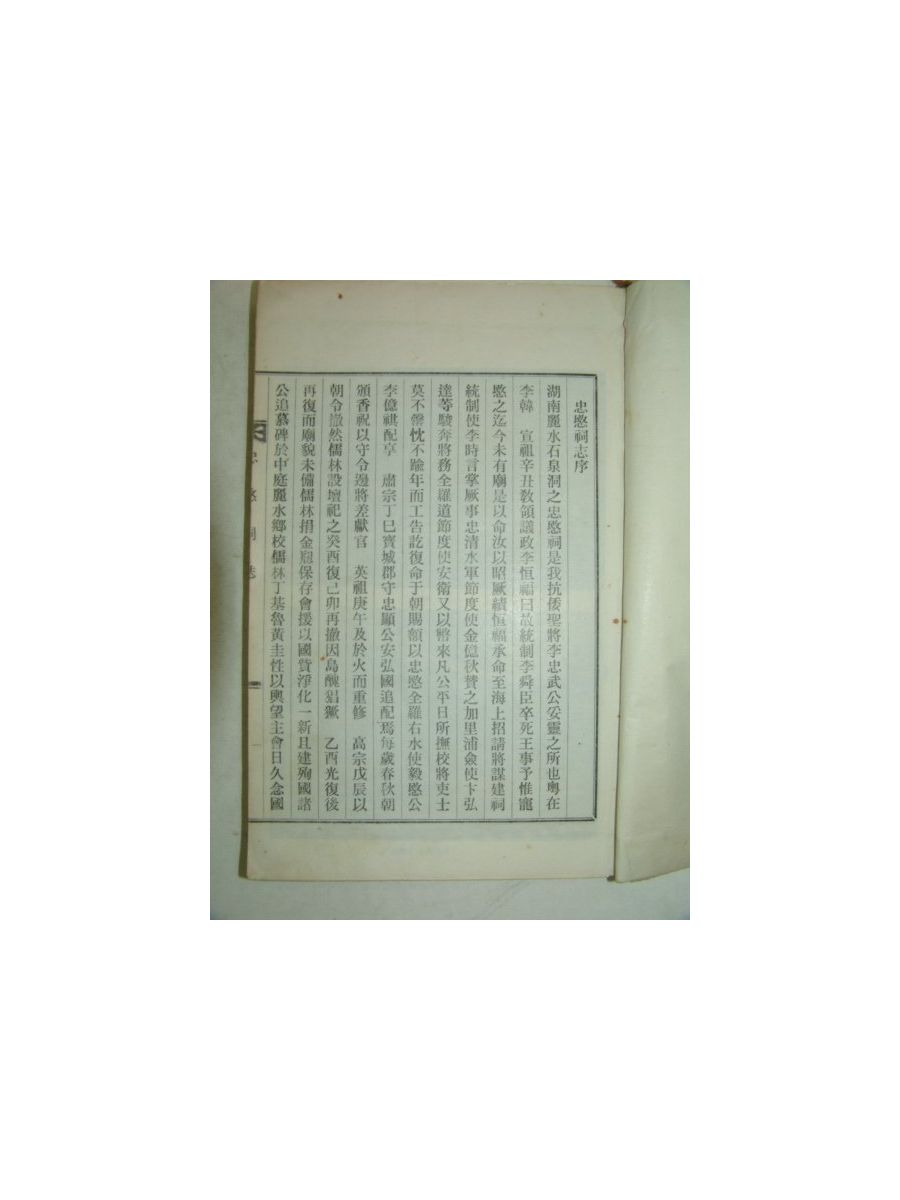 忠愍祠志序
湖南麗水石泉洞之忠愍祠是我抗倭聖將李忠武公妥靈之所也粤在
李韓　宣祖辛丑敎領議政李恒福曰故統制李舜臣卒死王事予惟寵
愍之迄今未有廟是以命汝以昭厥績恒福承命至海上招請將謀建祠
統制使李時言掌厥事忠清水軍節度使金億秋賛之加里浦僉使卞弘
達等駿奔將務全羅道節度使安衛又以幣來凡公平日所撫校將吏士
莫不馨忱不踰年而工告訖復命于朝賜額以忠愍全羅右水使毅愍公
李億祺配享　肅宗丁巳寶城郡守忠顯公安弘國追配焉每歲春秋朝
頒香祝以守令邊將差獻官　英祖庚午及於火而重修　高宗戊辰以
朝令撤然儒林設壇祀之癸酉復己卯再撤因島醜猖獗　乙酉光復後
再復而廟貌未備儒林捐金剏保存會援以國質淨化一新且建殉國諸
公追慕碑於中庭麗水鄉校儒林丁基魯黃圭性以輿望主會日久念國
忠愍祠誌